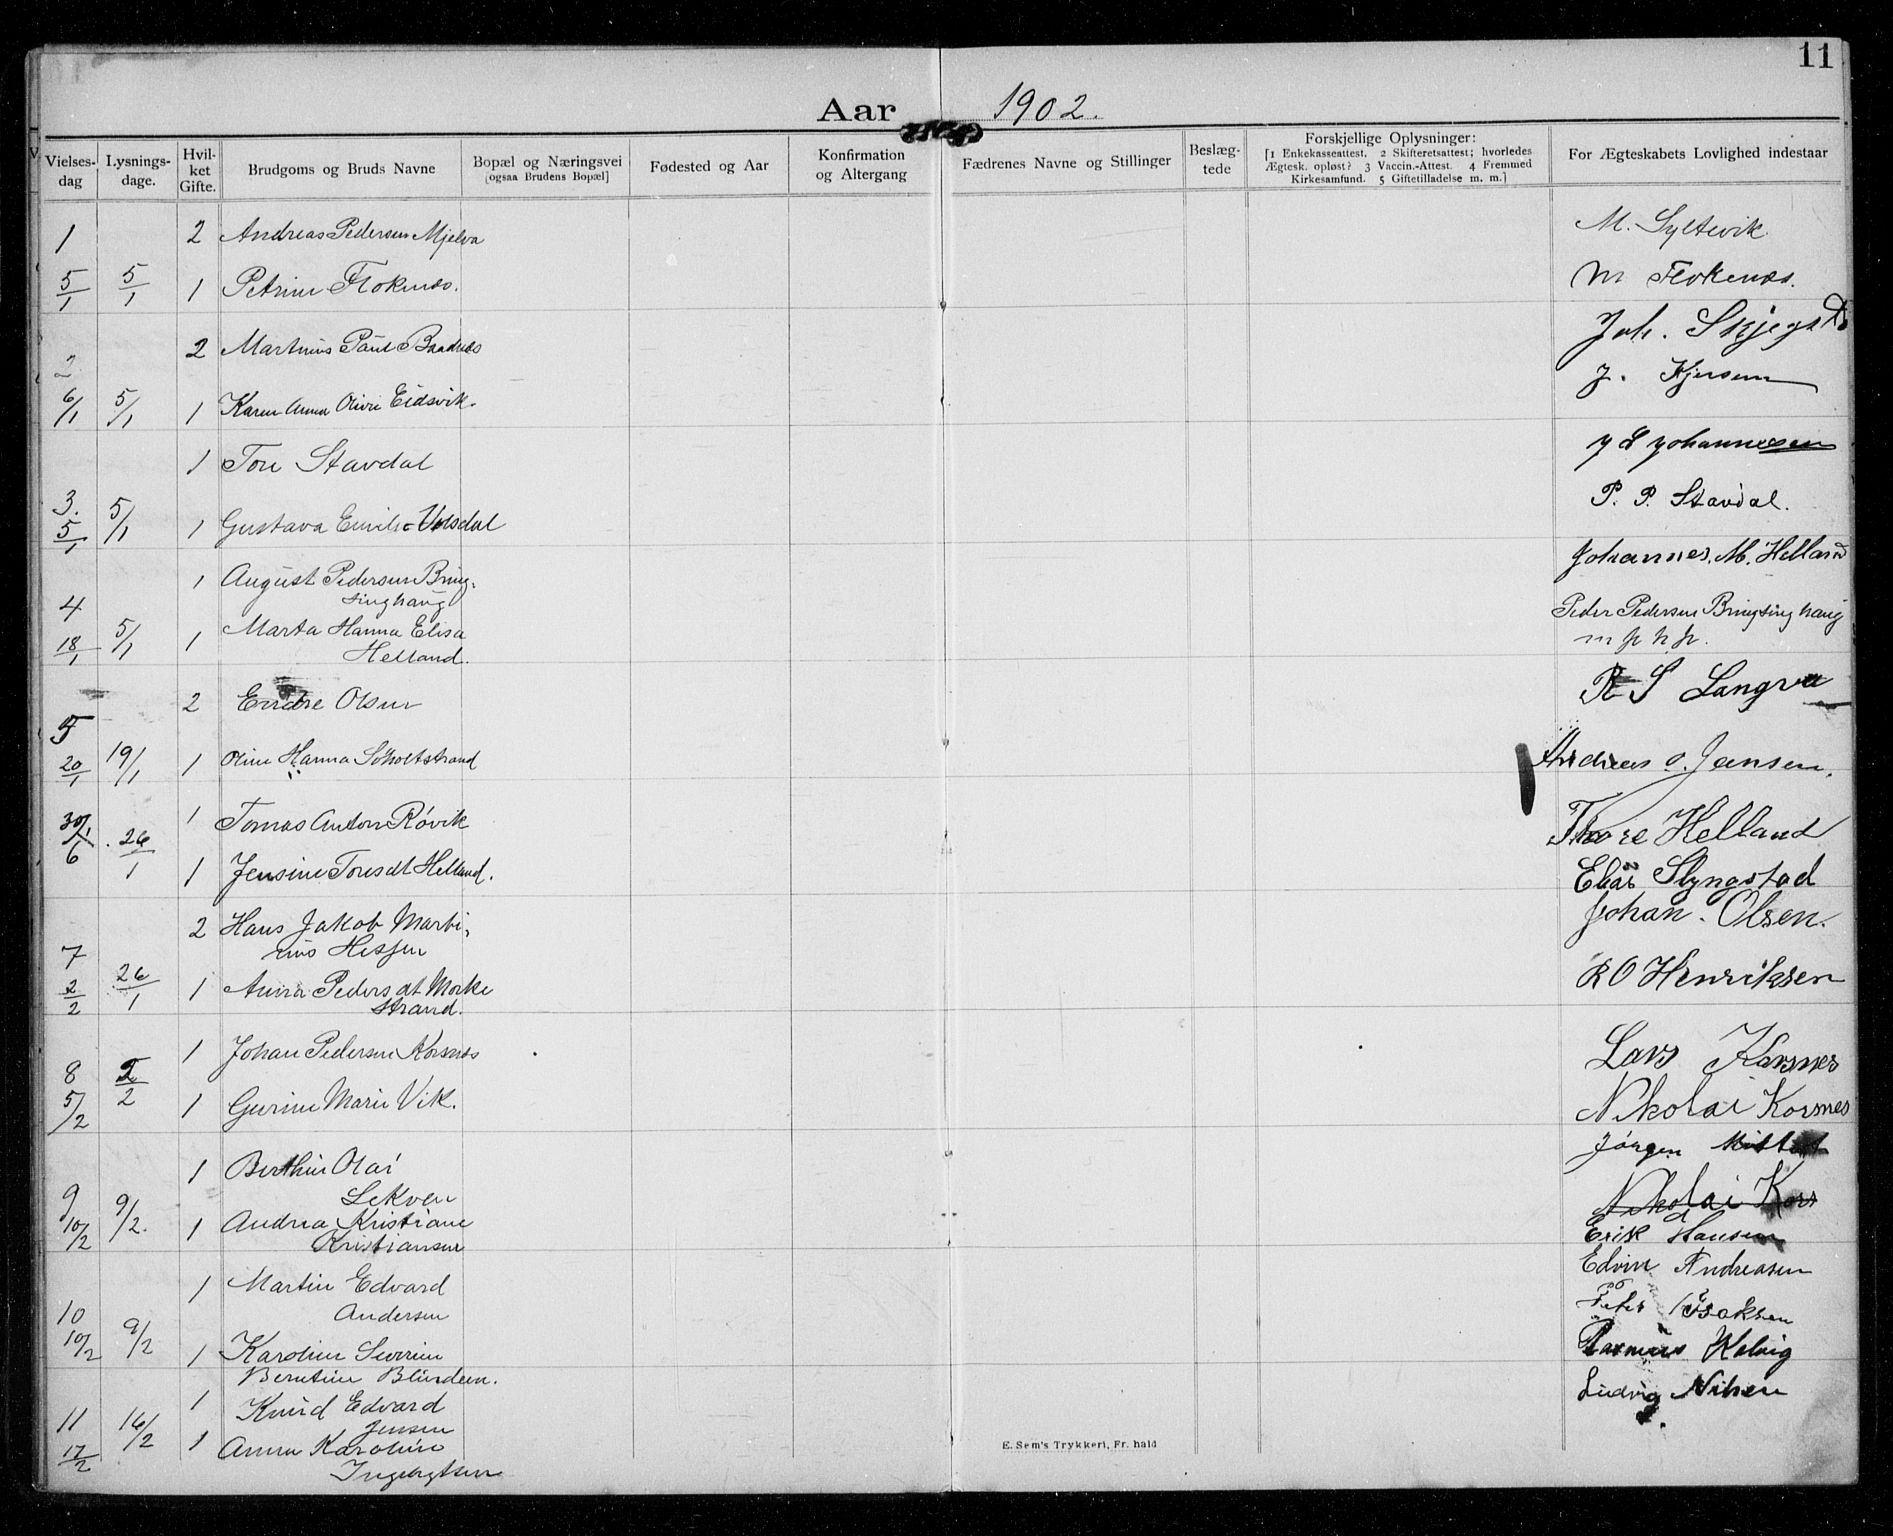 11
Aar 1902.
Vielses-dag
Lysnings-dage.
Hvil-ket Gifte.
Brudgoms og Bruds Navne
Bopæl og Næringsvei [ogsaa Brudens Bopæl]
Fødested og Aar
Konfirmation og Altergang
Fædrenes Navne og Stillinger
Beslæg-tede
Forskjellige Oplysninger: [1 Enkekasseattest. 2 Skifteretsattest; hvorledes Ægtesk. opløst? 3 Vaccin.-Attest. 4 Fremmed Kirkesamfund. 5 Giftetilladelse m. m.]
For Ægteskabets Lovlighed indestaar
1 2 Andreas Pedersen Mjelva M. Syltevik
5/1 5/1 1 Petrine Flokenes. M Flokenæs.
2 2 Martinus Paul Joh.
6/1 5/1 1 Karen Anna Olivie Eidsvik. J.
1 Tore Stavdal Johannessen
P. P. Stavdal.
3. 5/1 5/1 1 Gustava Emilie
1 August Pedersen Bring- Johannes. M. Helland
singhaug
4 Peder Pedersen Bringsinghaug
18/1 5/1 1 Marta Hanna Elisa m p h p.
Helland.
2 Endre Olsen R S Langva
5
20/1 19/1 1 Oline Hanna Søholtstrand Andreas O. Jensen.
30/1 1 Tomas Anton Røvik Thore Helland
6 26/1 1 Jensine Toresdt Helland. Elias Slyngstad
2 Hans Jakob Marti- Johan. Olsen.
nus Hessen
7
2/2 26/1 1 Anna Pedersdt Morke R O Henriksen
strand.
1 Johan Pedersen Korsnes Lars Korsnes
8 2/2
5/2 1 Gurine Marie Vik. Nikolai Korsnes
Jørgen
1 Berthin Olai
Lekven Nikolai Kors
9
10/2 9/2. 1 Andrea Kristiane Erik Hansen
Kristiansen
Edvin Andreasen
1 Martin Edvard
Andersen Peter Isaksen
10
10/2 9/2 1 Karoline Severine Rasmus
Berntine Blindeim.
1 Knud Edvard Ludvig Nilsen
Jensen
11
17/2 16/2 1 Anna Karoline
Ingebrigtsen
E. Sem's Trykkeri, Fr. hald